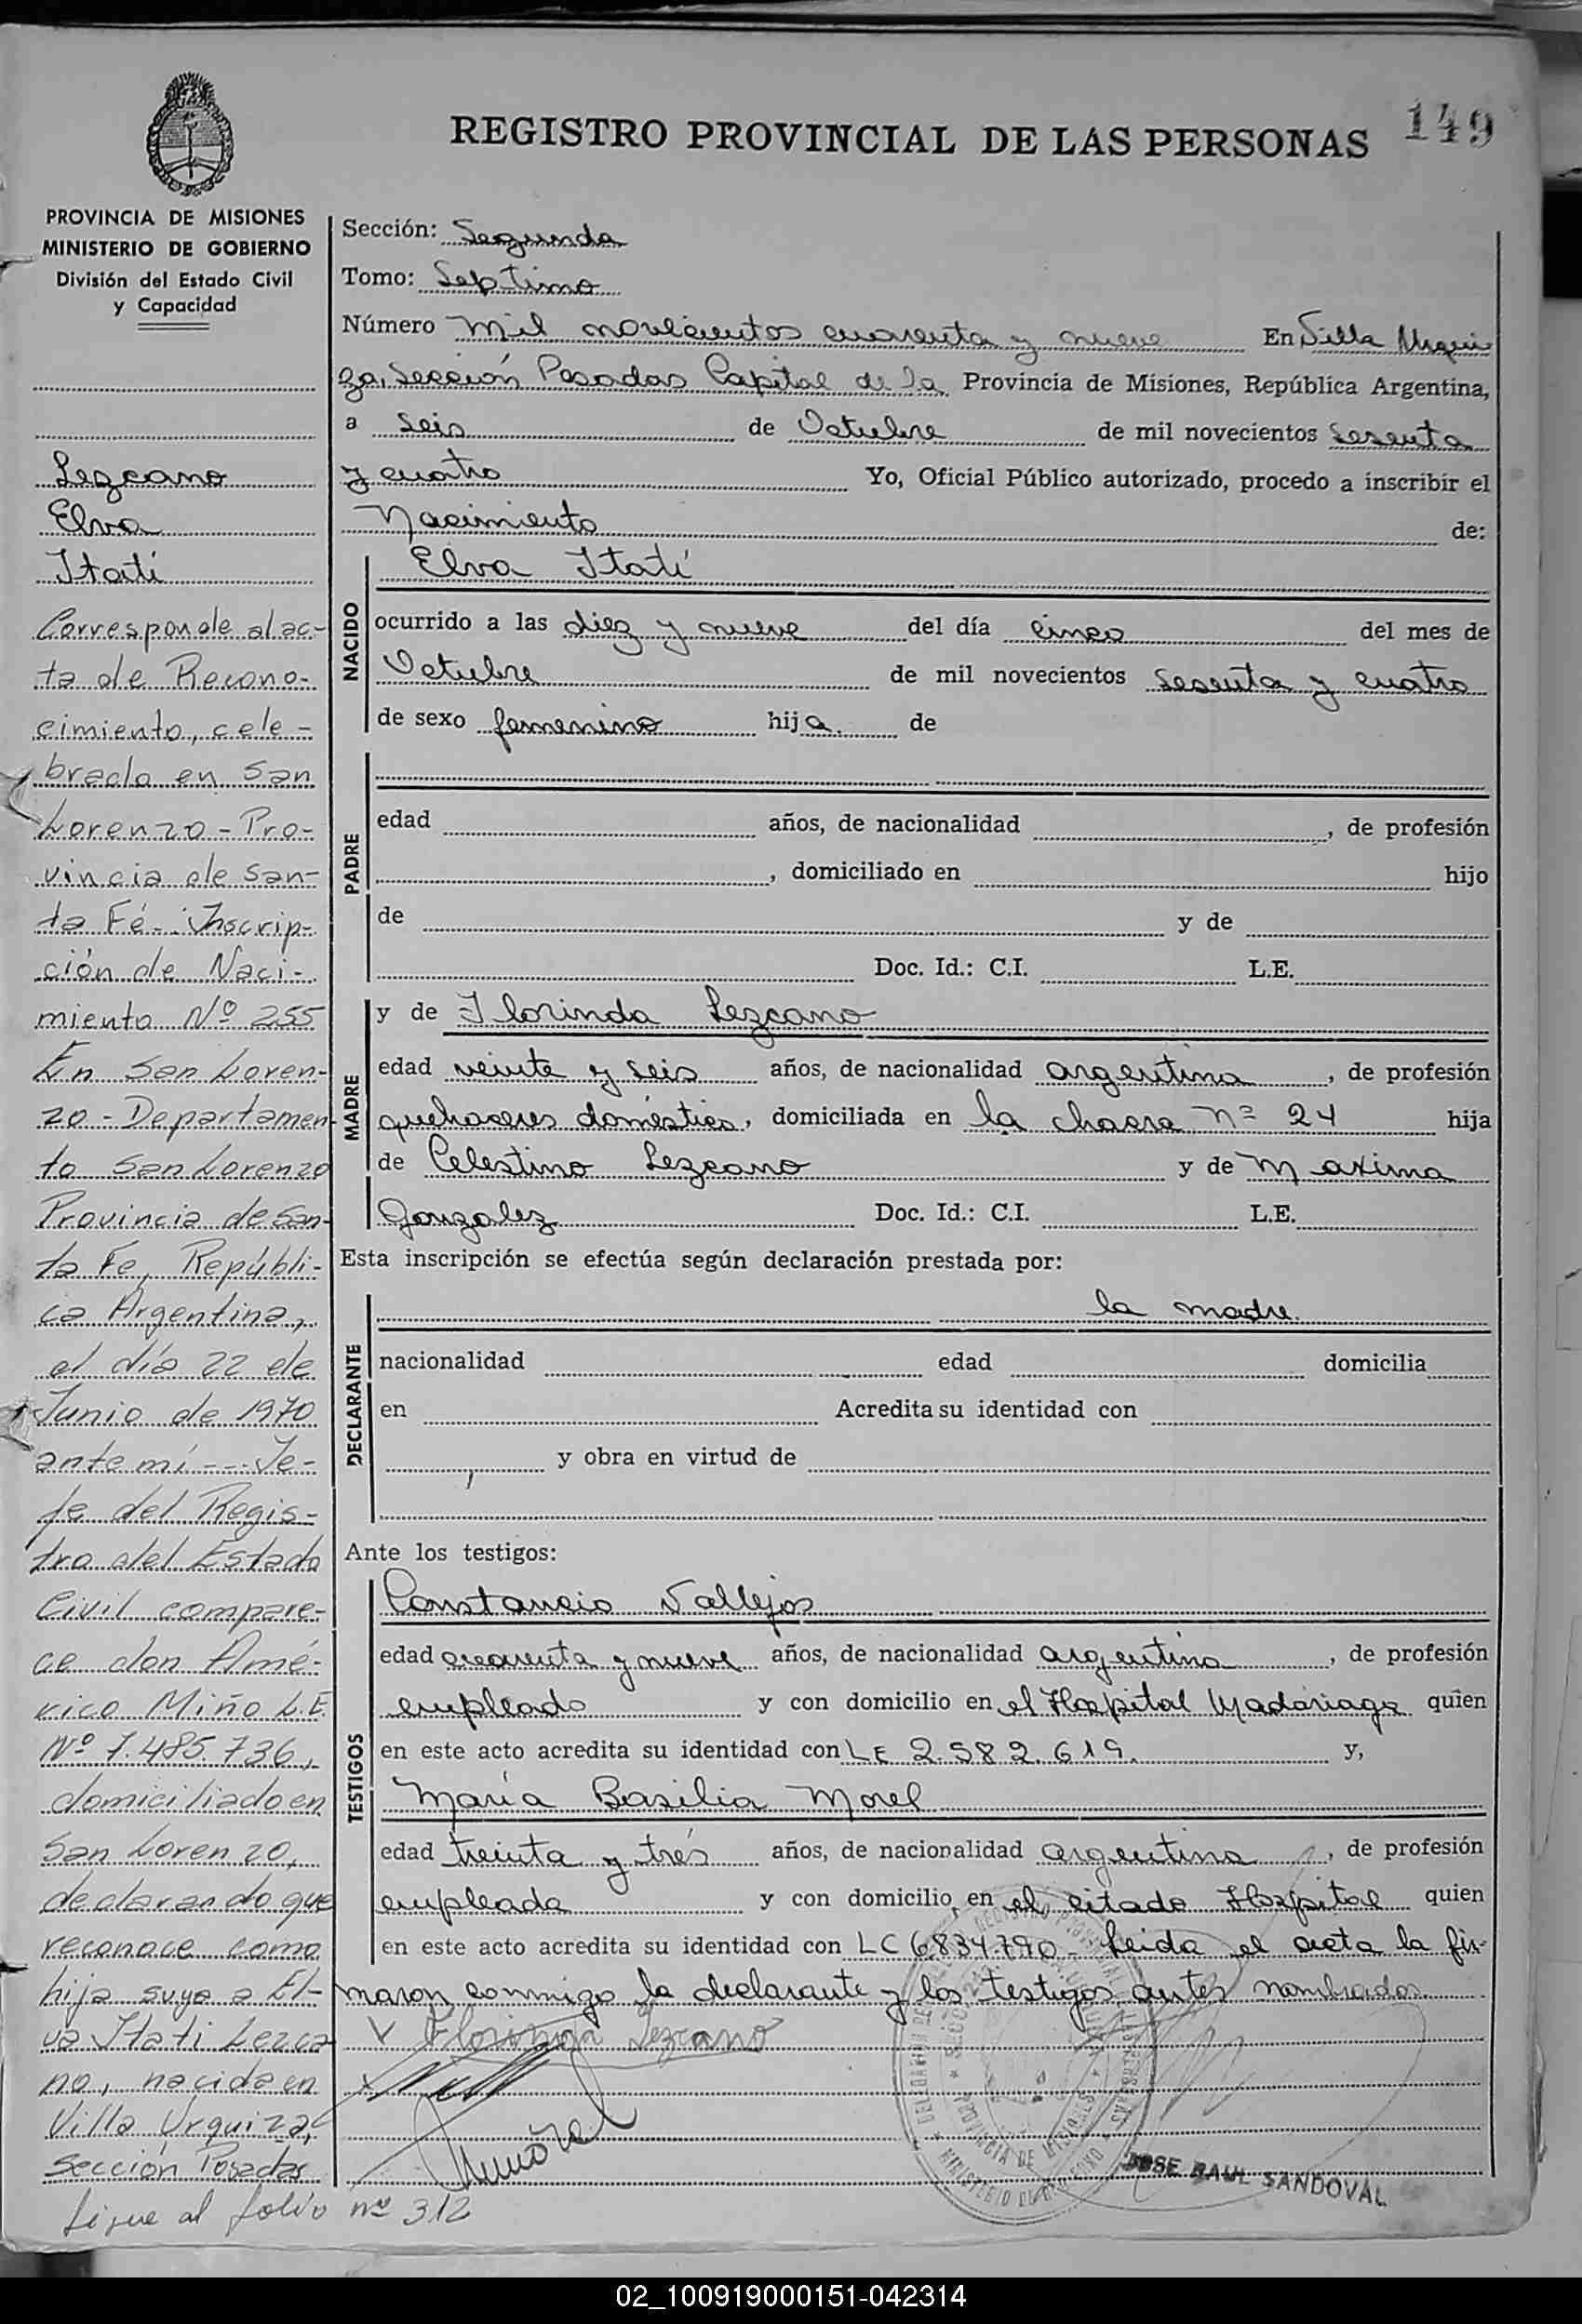 149
REGISTRO PROVINCIAL DE LAS PERSONAS
PROVINCIA DE MISIONES
MINISTERIO DE GOBIERNO
División del Estado Civil
y Capacidad
Lezcano
Elva
Itatí
Corresponde al ac-
ta de Recono-
cimiento, cele-
brado en San
Lorenzo - Pro-
vincia de San-
ta Fé -. Inscrip-
ción de Naci-
miento Nº 255
En San Loren-
zo - Departamen-
to San Lorenzo
Provincia de San-
ta Fe, Repúbli-
ca Argentina,
al día 22 de
Junio de 1970
ante mí --- Je-
fe del Regis-
tro del Estado
Civil compare-
ce don Amé-
rico Miño L.E.
Nº 7.485.736,
domiciliado en
San Lorenzo,
declarando que
reconoce como
hija suya a El-
va Itati Lezca
no, nacida en
Villa Urquiza,
Sección Posadas
Sigue al folio nº 312
Sección: Segunda
Tomo: Septimo
Número Mil novecientos cuarenta y nueve En Villa Urqui
za, Sección Posadas Capital de la Provincia de Misiones, República Argentina,
a seis de Octubre de mil novecientos sesenta
y cuatro Yo, Oficial Público autorizado, procedo a inscribir el
Nacimiento de:
NACIDO
Elva Itatí
ocurrido a las diez y nueve del día cinco del mes de
Octubre de mil novecientos sesenta y cuatro
de sexo femenino hija de
PADRE
edad años, de nacionalidad , de profesión
, domiciliado en hijo
de y de
Doc. Id.: C.I. L.E.
MADRE
y de Florinda Lezcano
edad veinte y seis años, de nacionalidad argentina , de profesión
quehaceres doméstico, domiciliada en la chacra nº 24 hija
de Celestino Lezcano y de Maxima
Gonzalez Doc. Id.: C.I. L.E.
Esta inscripción se efectúa según declaración prestada por:
DECLARANTE
la madre.
nacionalidad edad domicilia
en Acredita su identidad con
y obra en virtud de
Ante los testigos:
TESTIGOS
Constancio Vallejos
edad cuarenta y nueve años, de nacionalidad argentina , de profesión
empleado y con domicilio en el Hospital Madariaga quien
en este acto acredita su identidad con LE 2.582.619. y,
María Basilia Morel
edad treinta y trés años, de nacionalidad argentina , de profesión
empleada y con domicilio en el citado Hospital quien
en este acto acredita su identidad con LC 6.834.790 - Leida el acta la fir-
maron conmigo la declarante y los testigos antes nombrados.
Florinda Lezcano
JOSE RAUL SANDOVAL
PROVINCIA DE MISIONES
02_100919000151-042314